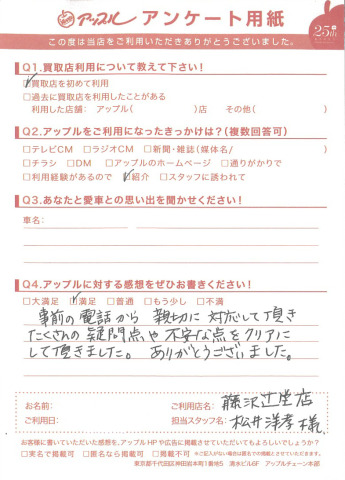 アップル アンケート用紙
25th
この度は当店をご利用いただきありがとうございました。
Q1.買取店利用について教えて下さい!
☑買取店を初めて利用
□過去に買取店を利用したことがある
利用した店舗: アップル( )店 その他( )
Q2.アップルをご利用になったきっかけは?(複数回答可)
□テレビCM □ラジオCM □新聞・雑誌(媒体名/ )
□チラシ □DM □アップルのホームページ □通りがかりで
□利用経験があるので ☑紹介 □スタッフに誘われて
Q3.あなたと愛車との思い出を聞かせください!
車名:
Q4.アップルに対する感想をぜひお書きください!
□大満足 ☑満足 □普通 □もう少し □不満
事前の電話から 親切に対応して頂き
たくさんの疑問点や不安な点をクリアに
して頂きました。ありがとうございました。
お名前: ご利用店名: 藤沢辻堂店
ご利用日: 担当スタッフ名: 松井洋孝様
お客様に書いていただいた感想を、アップルHPや広告に掲載させていただいてもよろしいでしょうか?
□実名で掲載可 □匿名なら掲載可 □掲載不可 ※ご記入がない場合は匿名での掲載とさせていただきます。
東京都千代田区神田岩本町1番地5 清水ビル6F アップルチェーン本部